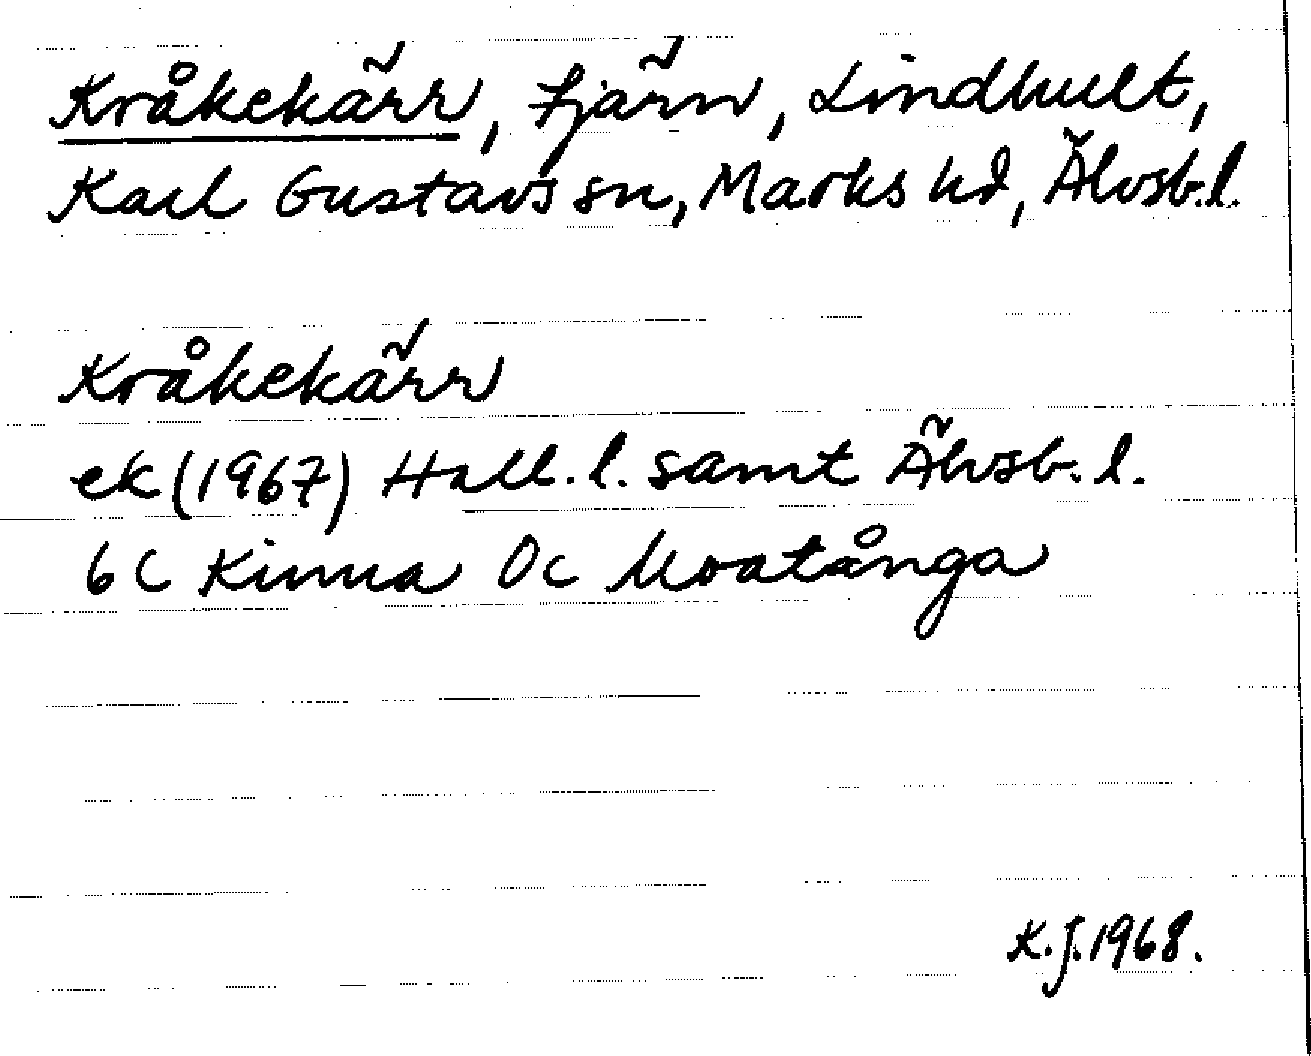 Kråkekärr, tjärn, Lindhult,
Karl Gustavs sn, Marks hd, Älvsb.l.
Kråkekärr
ek (1967) Hall. l. samt Älvsb. l.
6C Kinna 0c Moatånga
K.J. 1968.